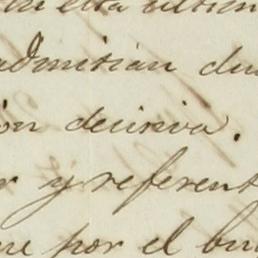 en esta ultim
admitian du
ion decisiva.
r y referent
ne por el bu